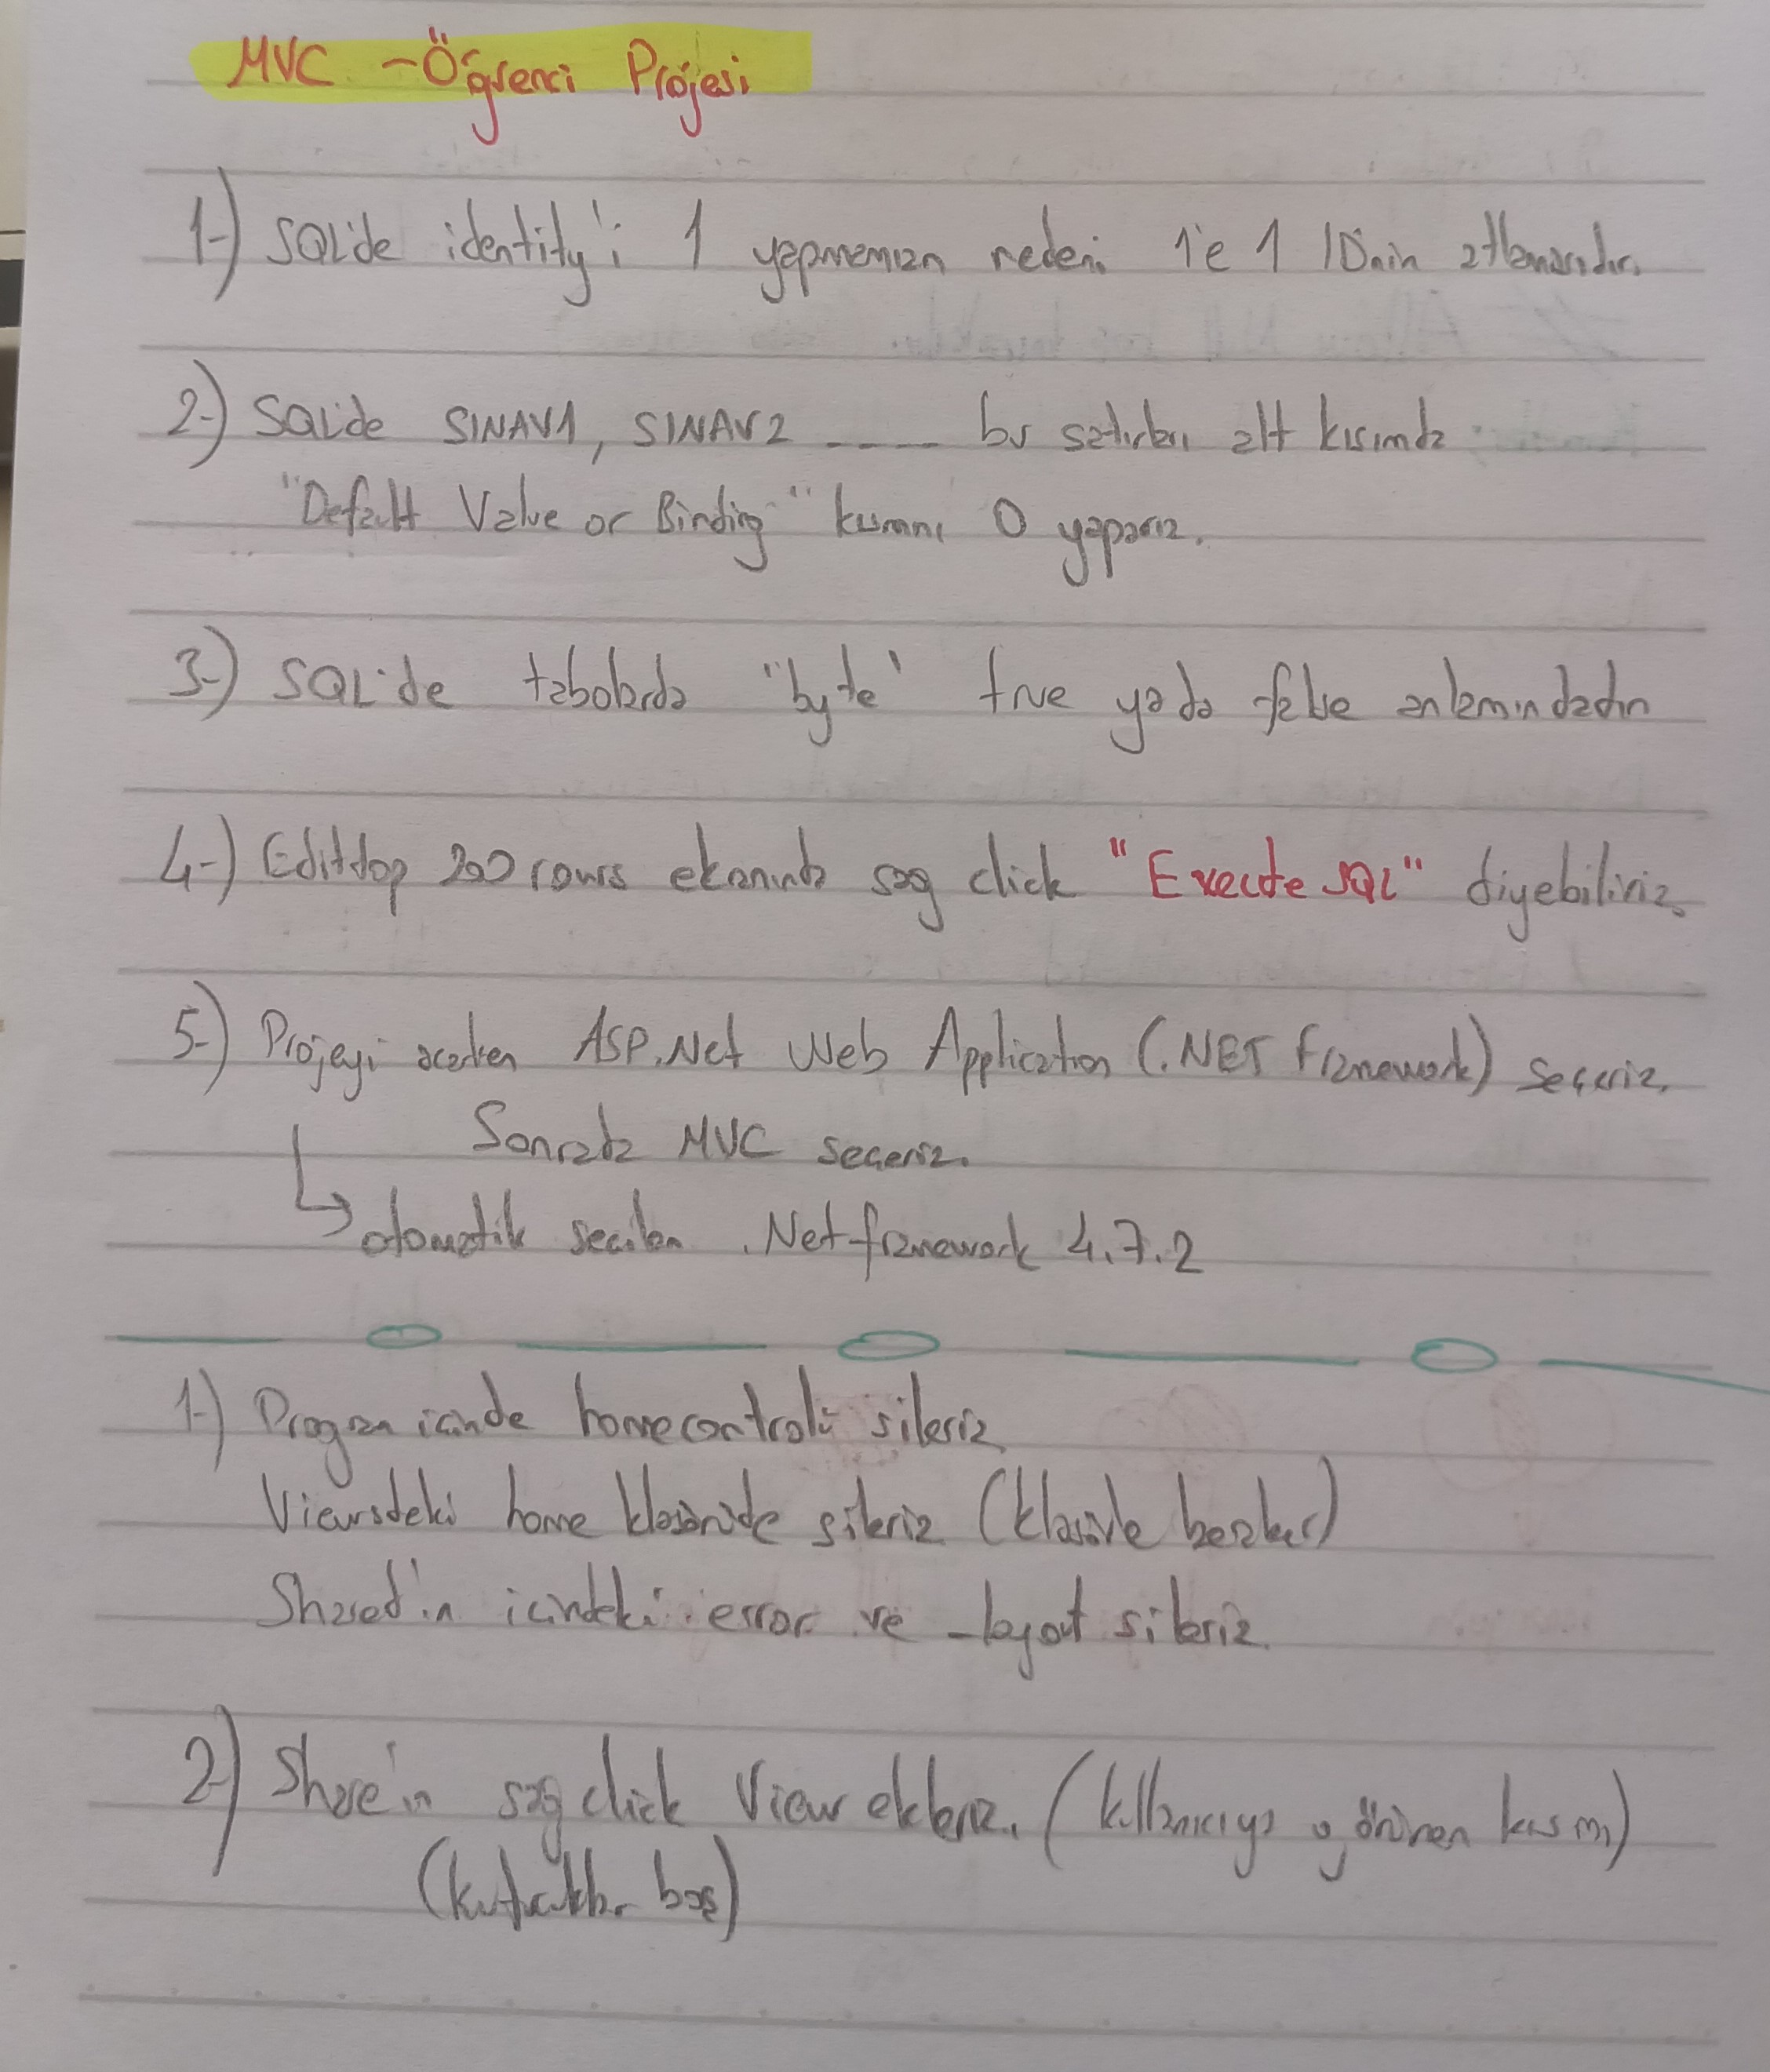 MVC - Öğrenci Projesi
1-) SQL'de identity'i 1 yapmamızın nedeni 1'e 1 ID'nin atlamasıdır.
2-) SQL'de SINAV1, SINAV2 ---- bu satırları alt kısımda
"Default Value or Binding" kısmını 0 yaparız.
3-) SQL'de tabolarda "byte" true yada false anlamındadır
4-) Edit top 200 rows ekranında sağ click "Execute SQL" diyebiliriz.
5-) Projeyi açarken ASP.Net Web Application (.NET Framework) seçeriz.
Sonrada MVC seçeriz.
↳ otomatik seçilen .Net framework 4.7.2
1-) Program içinde homecontrolü sileriz
Viewsdeki home klasörüde sileriz (klasörle beraber)
Shared'in içindeki error ve _layout sileriz.
2-) Share'in sağ click View ekleriz. (kullanıcıya görünen kısmı)
(kutucuklar boş)